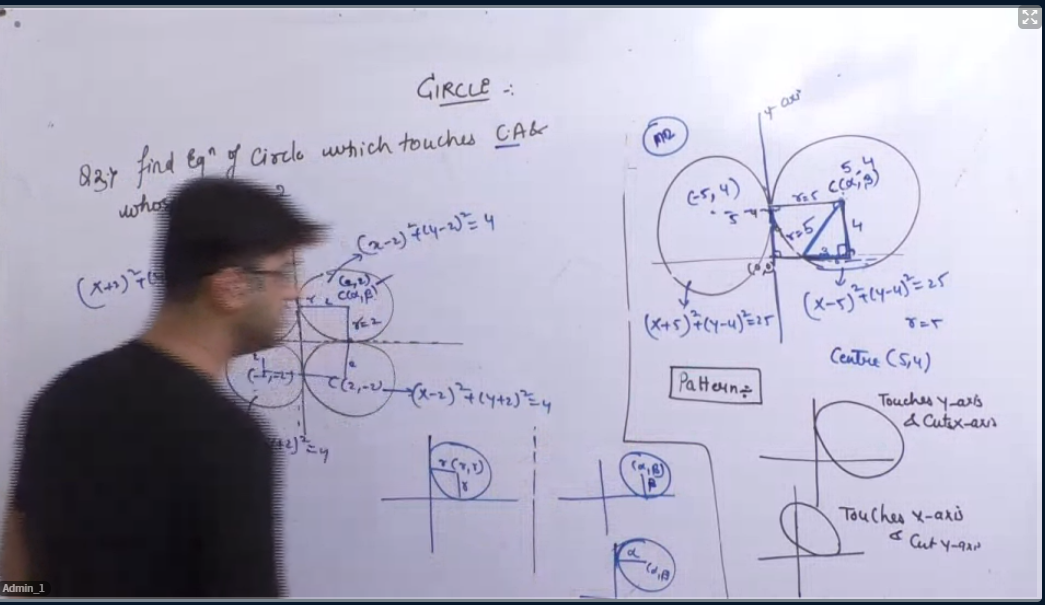 CIRCLE :-
Q3:→ find Eqn of Circle which touches C.A &
whos
(x-2)²+(y-2)²=4
(2,2)
C(α,β)
r 2
r=2
2
(-2,-2)
2
C(2,-2)
(x-2)²+(y+2)²=4
+2)²=4
r (r,r)
r
(α,β)
β
α
(α,β)
y axis
(-5,4)
5,4
C(α,β)
r=5
r=5
4
3
(0,0)
(x+5)²+(y-4)²=25
(x-5)²+(y-4)²=25
r=5
Centre (5,4)
Pattern ÷
Touches y-axis
& Cuts x-axis
Touches x-axis
& Cut y-axis
Admin_1